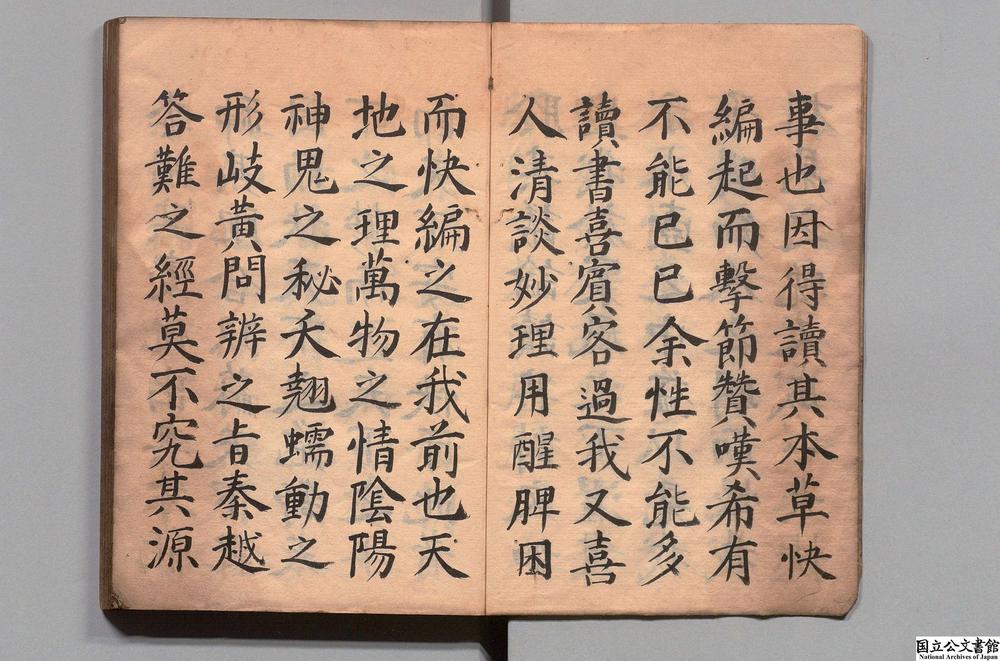 事也因得讀其本草快
編起而擊節贊嘆希有
不能已已余性不能多
讀書喜賓客過我又喜
人清談妙理用醒脾困
而快編之在我前也天
地之理萬物之情陰陽
神鬼之秘夭翹蠕動之
形岐黃問辨之旨秦越
答難之經莫不究其源
国立公文書館
National Archives of Japan